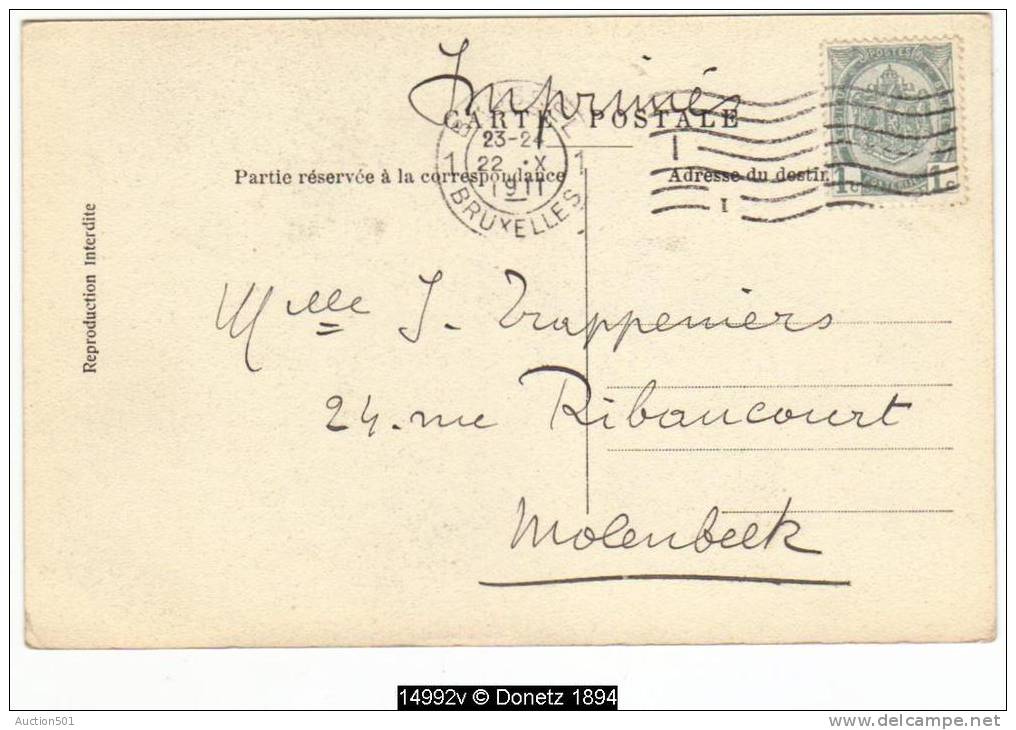 Imprimés
CARTE POSTALE
POSTES
23-24
1 22 X 1
1911
BRUXELLES
Partie réservée à la correspondance
Adresse du destin
1c 1c
I
Reproduction Interdite
Mlle J. Trappeniers
24. rue Ribaucourt
Molenbeek
14992v © Donetz 1894
Auction501
www.delcampe.net